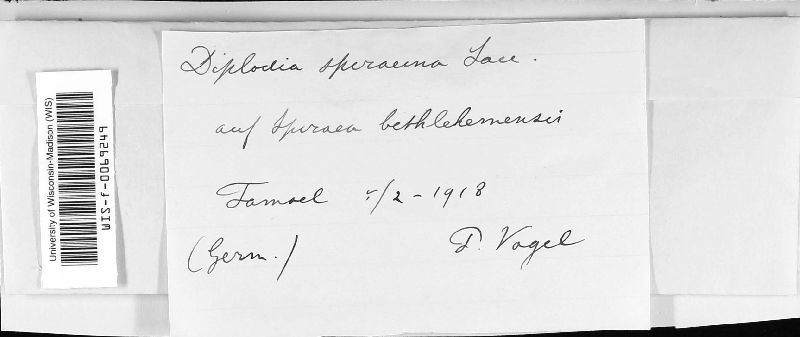 Diplodia spiraeina Sacc.
auf Spiraea bethlehemensis
Tamsel /2-1918
(Germ.) P. Vogel
University of Wisconsin-Madison (WIS)
WIS-f-0069249